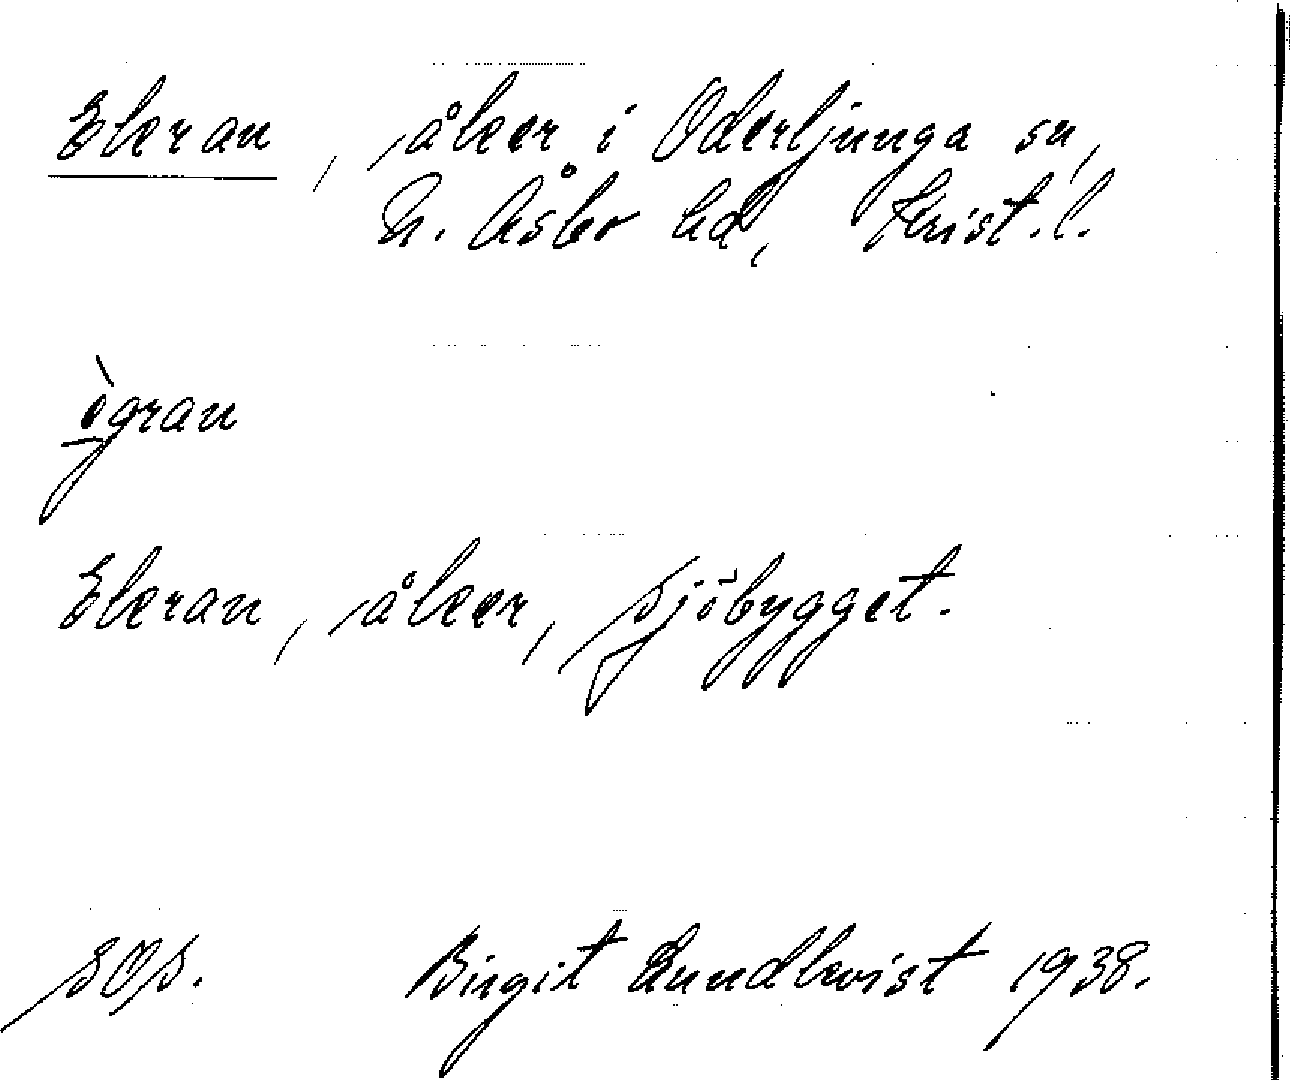 Ekran, åker i Oderljunga sn,
N. Åsbo hd, Krist. l.
ògran
Ekran, åker, Sjöbygget.
SOS. Birgit Lundkvist 1938.